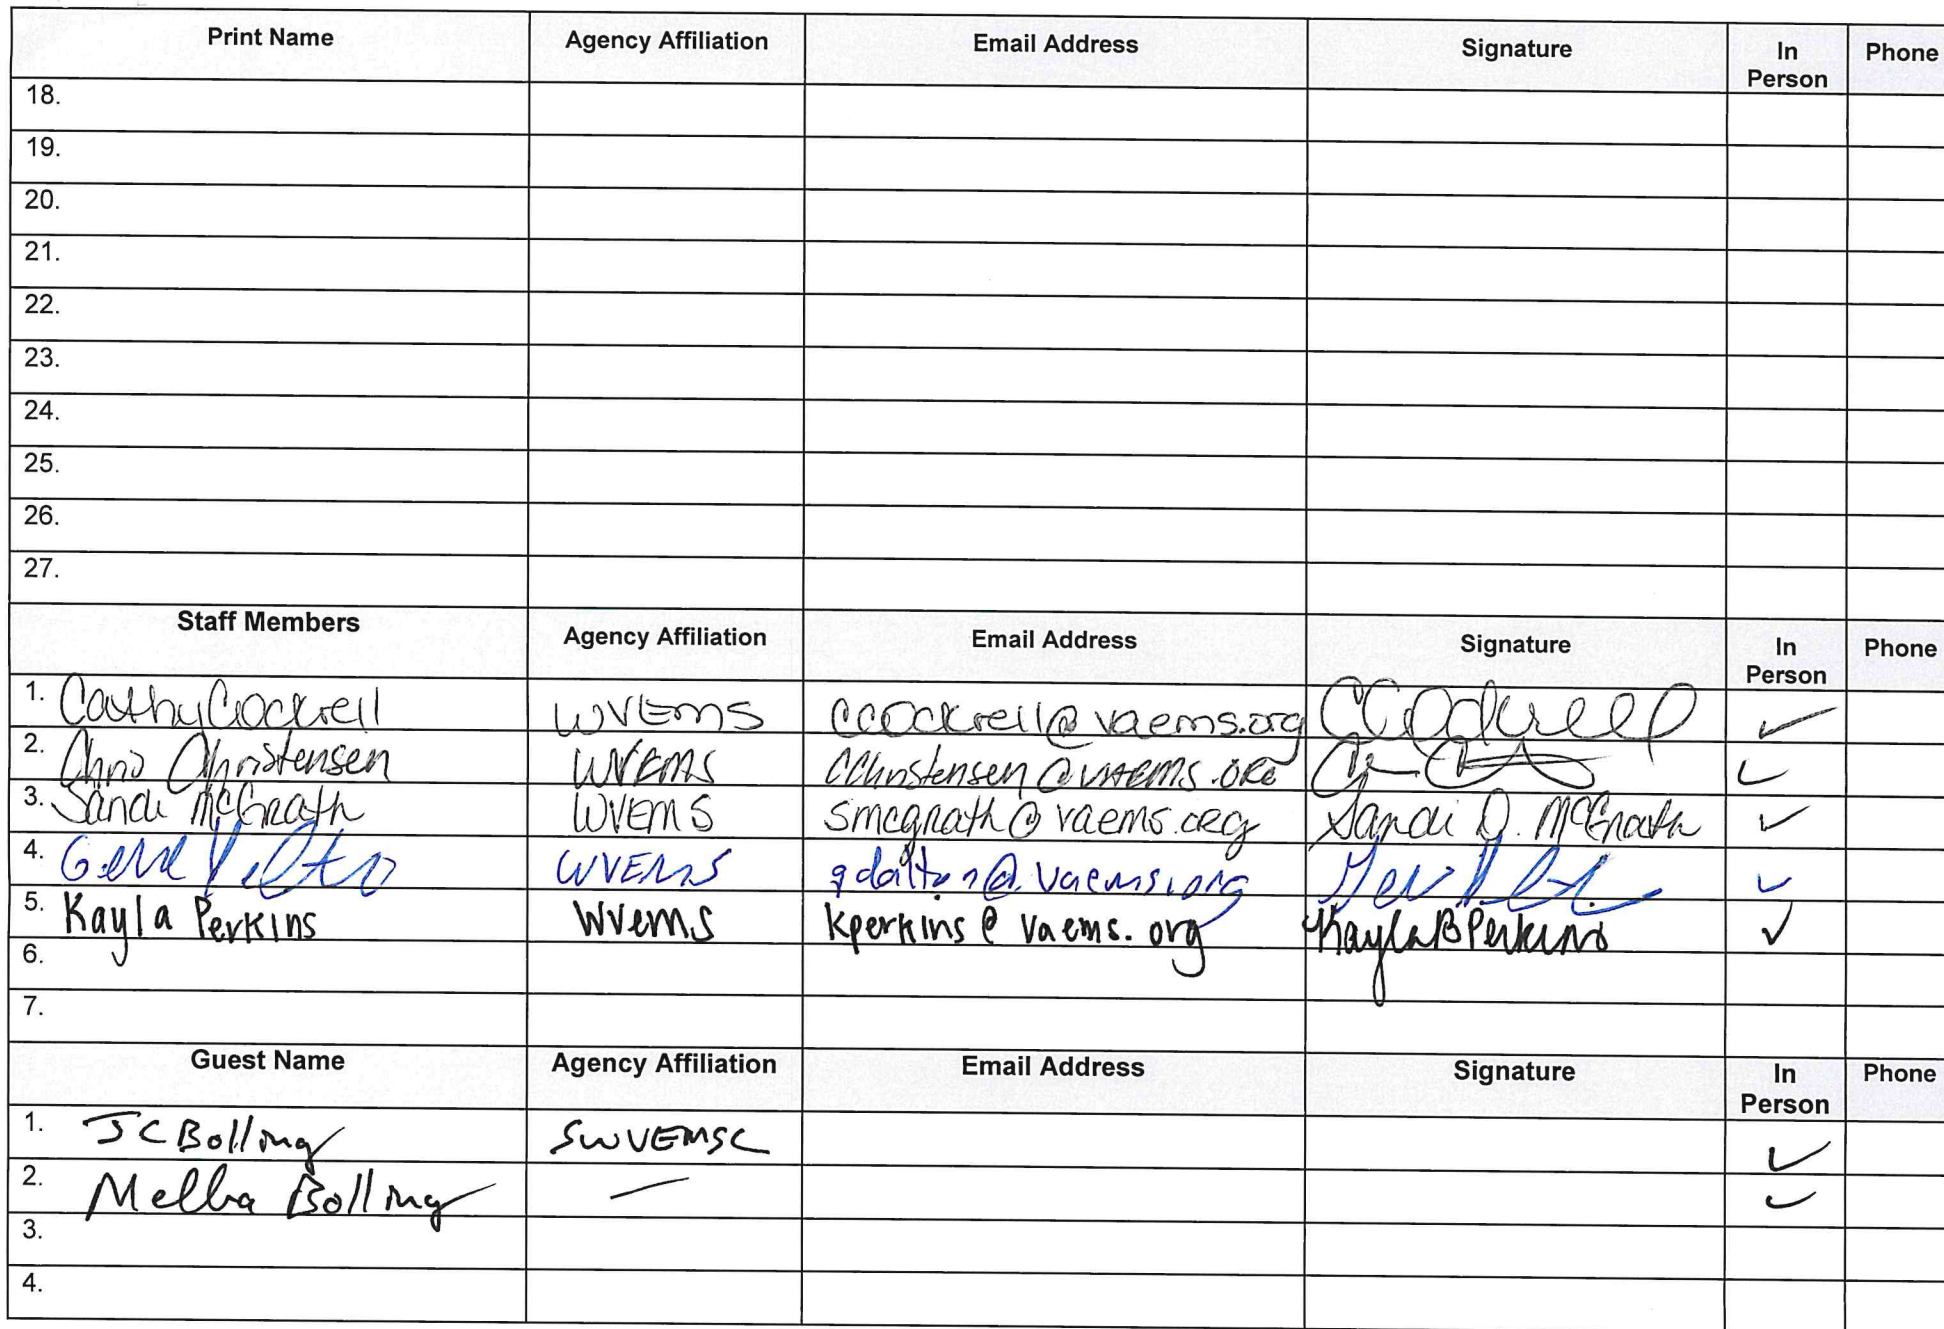 Print Name Agency Affiliation Email Address Signature In Person Phone
18.
19.
20.
21.
22.
23.
24.
25.
26.
27.
Staff Members Agency Affiliation Email Address Signature In Person Phone
1. Cathy Cockrell WVEMS ccockrell@vaems.org CCockrell ✓
2. Chris Christensen WVEMS cchristensen@vaems.org ✓
3. Sandi McGrath WVEMS smcgrath@vaems.org Sandi D. McGrath ✓
4. Gene Dalton WVEMS gdalton@vaems.org ✓
5. Kayla Perkins Wvems kperkins@vaems.org Kayla B Perkins ✓
6.
7.
Guest Name Agency Affiliation Email Address Signature In Person Phone
1. JC Bolling SWVEMSC ✓
2. Melba Bolling — ✓
3.
4.